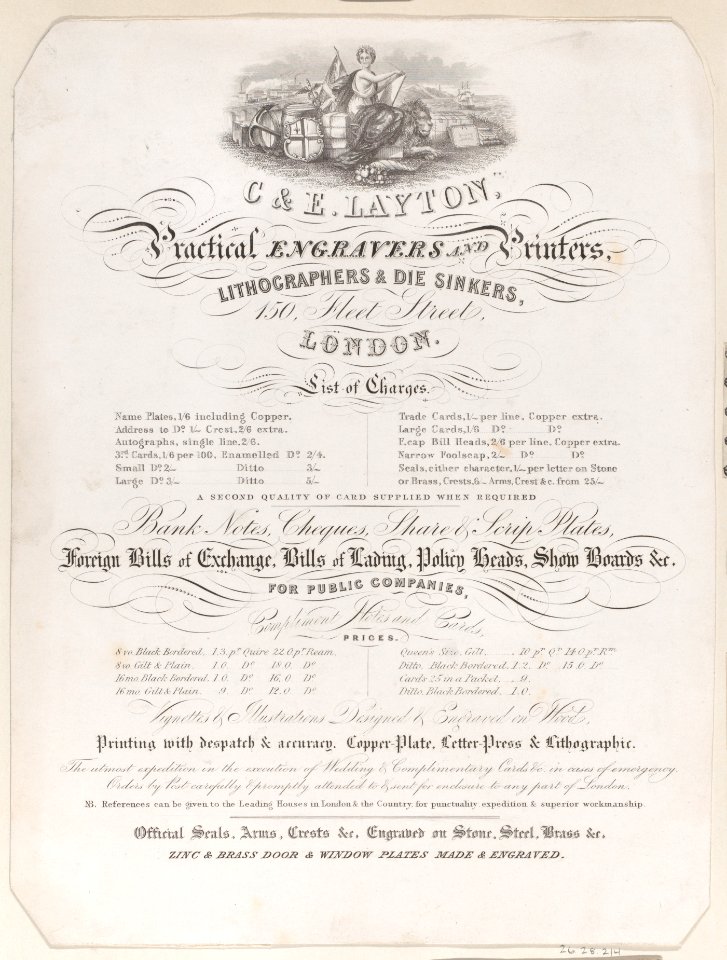 C & E. LAYTON,
Practical ENGRAVERS AND Printers,
LITHOGRAPHERS & DIE SINKERS,
150, Fleet Street,
LONDON.
List of Charges.
Name Plates, 1/6 including Copper.
Address to Dº 1/- Crest, 2/6 extra.
Autographs, single line, 2/6.
3rd Cards, 1/6 per 100. Enamelled Dº 2/4.
Small Dº 2/- Ditto 3/-
Large Dº 3/- Ditto 5/-
Trade Cards, 1/- per line, Copper extra.
Large Cards, 1/6 Dº Dº
F.cap Bill Heads, 2/6 per line, Copper extra.
Narrow Foolscap, 2/- Dº Dº
Seals, either character, 1/- per letter on Stone
or Brass, Crests, 6/- Arms, Crest &c. from 25/-
A SECOND QUALITY OF CARD SUPPLIED WHEN REQUIRED
Bank Notes, Cheques, Share & Scrip Plates,
Foreign Bills of Exchange, Bills of Lading, Policy Heads, Show Boards &c.
FOR PUBLIC COMPANIES,
Compliment Notes and Cards,
PRICES.
8vo. Black Bordered. 1.3. pr Quire 22.0 pr Ream
8vo Gilt & Plain. 1.0. Dº 18.0 Dº
16mo. Black Bordered. 1.0. Dº 16.0 Dº
16mo Gilt & Plain. .9. Dº 12.0 Dº
Queen's Size, Gilt........10 pr Qr 14.0 pr Rm
Ditto. Black Bordered. 1.2. Dº 15.0 Dº
Cards 25 in a Packet .... 9.
Ditto. Black Bordered. 1.0.
Vignettes & Illustrations Designed & Engraved on Wood,
Printing with despatch & accuracy. Copper-Plate, Letter-Press & Lithographic.
The utmost expedition in the execution of Wedding & Complimentary Cards &c. in cases of emergency.
Orders by Post carefully & promptly attended to & sent for enclosure to any part of London.
NB. References can be given to the Leading Houses in London & the Country, for punctuality, expedition & superior workmanship.
Official Seals, Arms, Crests &c. Engraved on Stone, Steel, Brass &c.
ZINC & BRASS DOOR & WINDOW PLATES MADE & ENGRAVED.
26.28.214